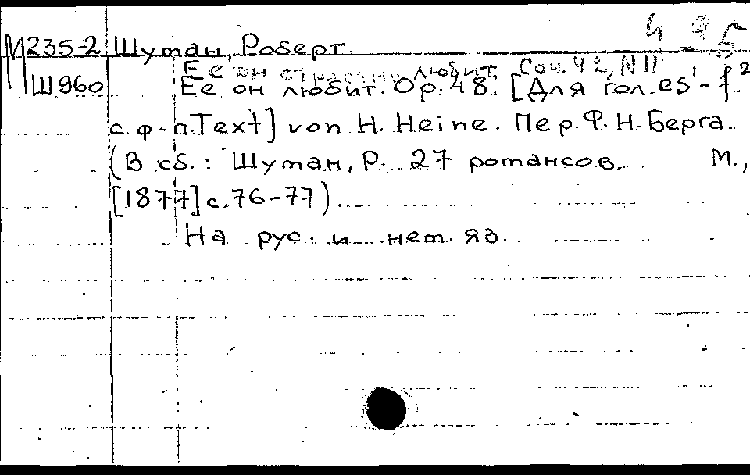 495
М235-2 Шуман, Роберт
Ее он страстно любит. Соч. 42, N 11
Ш960 Ее он любит. Op. 48. [Для гол. es¹-f²
с ф-п. Text] von H. Heine. Пер. Ф. Н. Берга.
(В сб.: Шуман, Р. 27 романсов. М.,
[1877] с. 76-77).
На рус. и нем. яз.